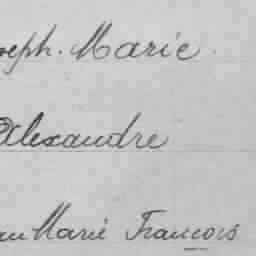 oseph. Marie
Alexandre
an Marie François